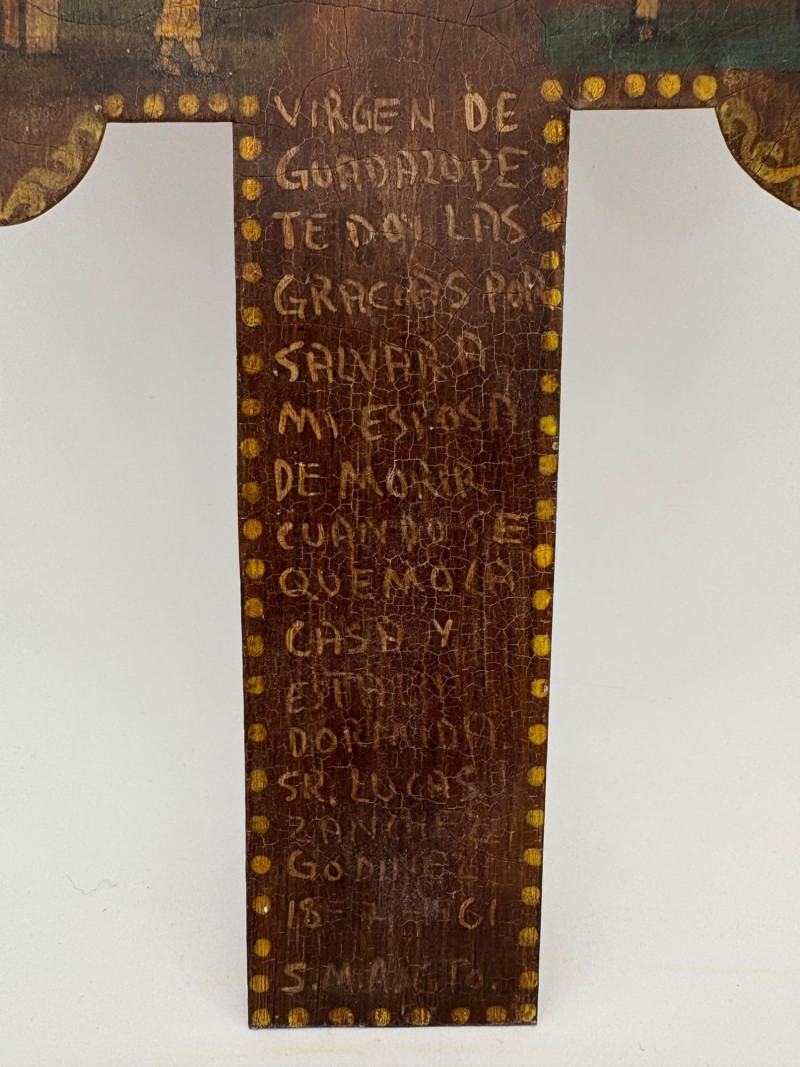 VIRGEN DE
GUADALUPE
TE DOI LAS
GRACIAS POR
SALVAR A
MI ESPOSA
DE MORIR
CUANDO SE
QUEMO LA
CASA Y
DORMIDA
SR. LUCAS
ZANCHEZ
GODINEZ
18 61